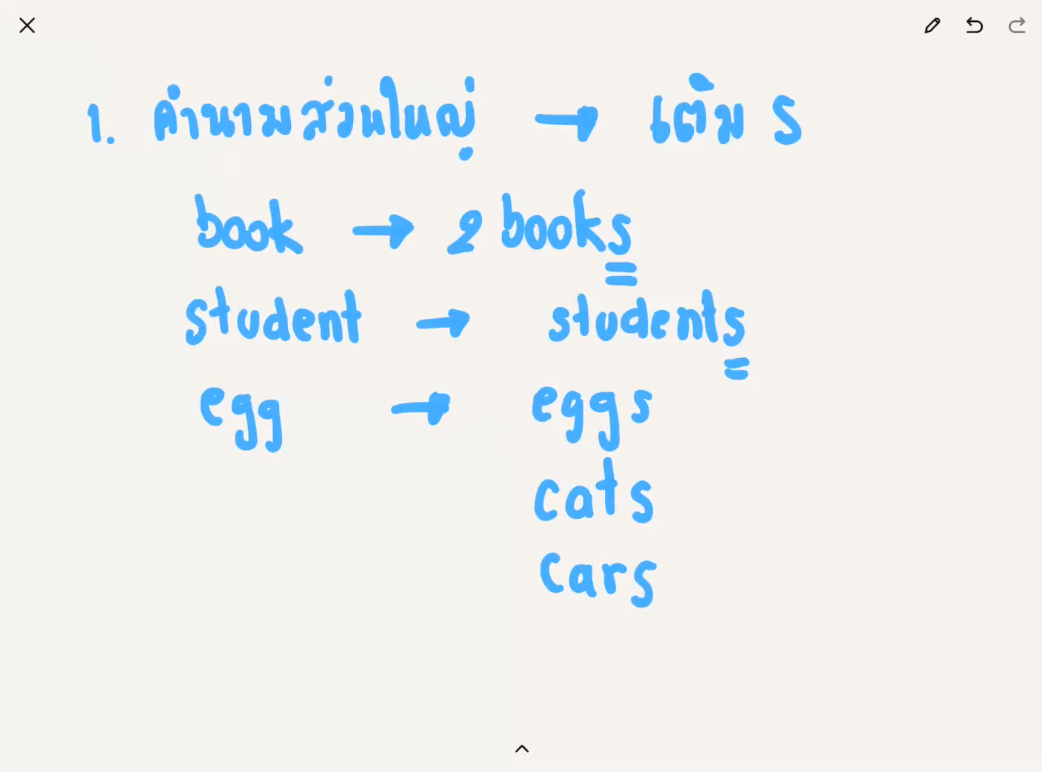 1. คำนามส่วนใหญ่ → เติม s
book → 2 books
student → students
egg → eggs
cats
cars